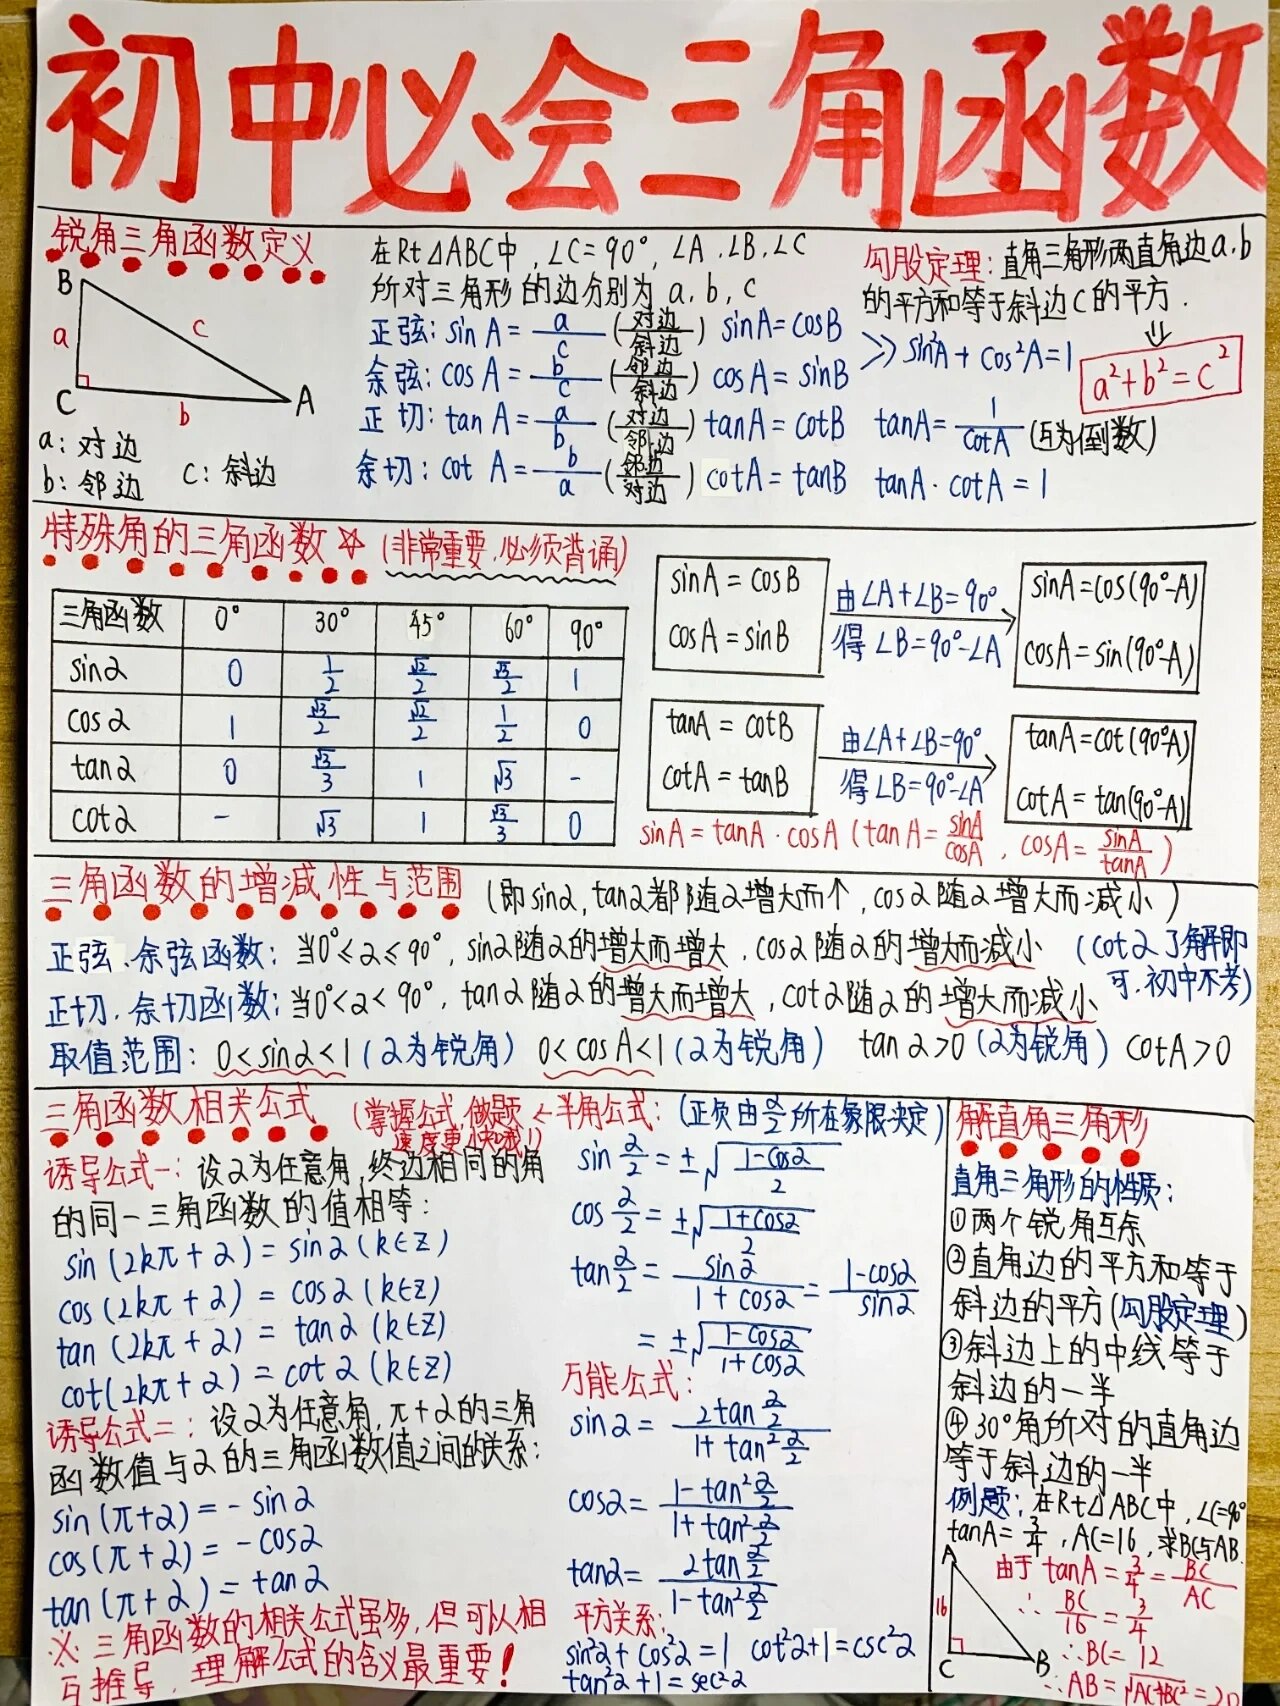 初中必会三角函数
锐角三角函数定义
B
a
c
C
b
A
a：对边
b：邻边 c：斜边
在Rt△ABC中，∠C=90°，∠A、∠B、∠C
所对三角形的边分别为 a、b、c
正弦：sin A = a/c (对边/斜边) sinA=cosB
余弦：cos A = b/c (邻边/斜边) cosA=sinB
正切：tan A = a/b (对边/邻边) tanA=cotB
余切：cot A = b/a (邻边/对边) cotA=tanB
勾股定理：直角三角形两直角边a、b
的平方和等于斜边c的平方.
⇓
≫ sin²A+cos²A=1
a²+b²=c²
tanA=1/cotA (互为倒数)
tanA·cotA=1
特殊角的三角函数☆ (非常重要，必须背诵)
三角函数 0° 30° 45° 60° 90°
sin2 0 1/2 √2/2 √3/2 1
cos2 1 √3/2 √2/2 1/2 0
tan2 0 √3/3 1 √3 -
cot2 - √3 1 √3/3 0
sinA=cosB
cosA=sinB
由∠A+∠B=90°
得∠B=90°-∠A
sinA=cos(90°-A)
cosA=sin(90°-A)
tanA=cotB
cotA=tanB
由∠A+∠B=90°
得∠B=90°-∠A
tanA=cot(90°A)
cotA=tan(90°-A)
sinA=tanA·cosA (tanA=sinA/cosA，cosA=sinA/tanA)
三角函数的增减性与范围 (即sin2，tan2都随2增大而个，cos2随2增大而减小)
正弦、余弦函数：当0°≤2≤90°，sin2随2的增大而增大，cos2随2的增大而减小 (cot2了解即
可，初中不考)
正切、余切函数：当0°<2<90°，tan2随2的增大而增大，cot2随2的增大而减小
取值范围：0<sin2<1(2为锐角) 0<cosA<1(2为锐角) tan2>0(2为锐角) cotA>0
三角函数相关公式 (掌握公式，做题
速度更快哦!)
诱导公式一：设2为任意角，终边相同的角
的同一三角函数的值相等：
sin(2kπ+2)=sin2(k∈Z)
cos(2kπ+2)=cos2(k∈Z)
tan(2kπ+2)=tan2(k∈Z)
cot(2kπ+2)=cot2(k∈Z)
诱导公式二：设2为任意角，π+2的三角
函数值与2的三角函数值之间的关系：
sin(π+2)=-sin2
cos(π+2)=-cos2
tan(π+2)=tan2
※三角函数的相关公式虽多，但可以相
互推导，理解公式的含义最重要！
←半角公式：(正负由2/2所在象限决定)
sin 2/2=±√(1-cos2)/2
cos 2/2=±√(1+cos2)/2
tan 2/2=sin2/(1+cos2)=(1-cos2)/sin2
=±√(1-cos2)/(1+cos2)
万能公式：
sin2=2tan 2/2/(1+tan² 2/2)
cos2=(1-tan² 2/2)/(1+tan² 2/2)
tan2=2tan 2/2/(1-tan² 2/2)
平方关系：
sin²2+cos²2=1 cot²2+1=csc²2
tan²2+1=sec²2
解直角三角形
直角三角形的性质：
①两个锐角互余
②直角边的平方和等于
斜边的平方(勾股定理)
③斜边上的中线等于
斜边的一半
④30°角所对的直角边
等于斜边的一半
例题：在Rt△ABC中，∠C=90°
tanA=3/4，AC=16，求BC与AB.
A
16
C
B
由于tanA=3/4=BC/AC
∴BC/16=3/4
∴BC=12
∴AB=√AC²+BC²=20